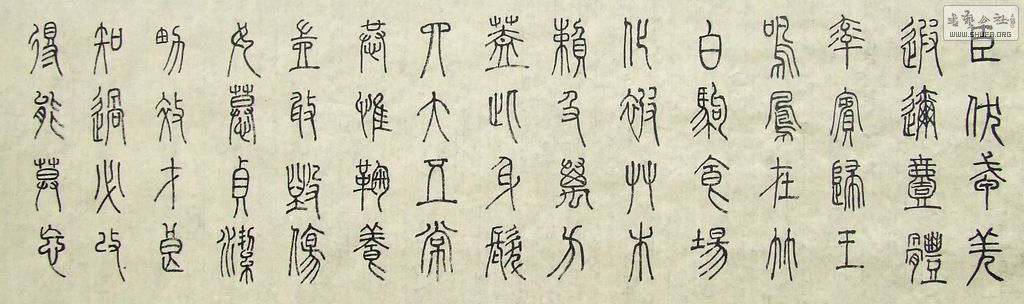 臣伏戎羌
遐邇壹體
率賓歸王
鳴鳳在竹
白駒食場
化被艸木
賴及萬方
蓋此身髮
四大五常
恭惟鞠養
豈敢毀傷
女慕貞潔
男效才良
知過必改
得能莫忘
WWW.SHUFA.ORG